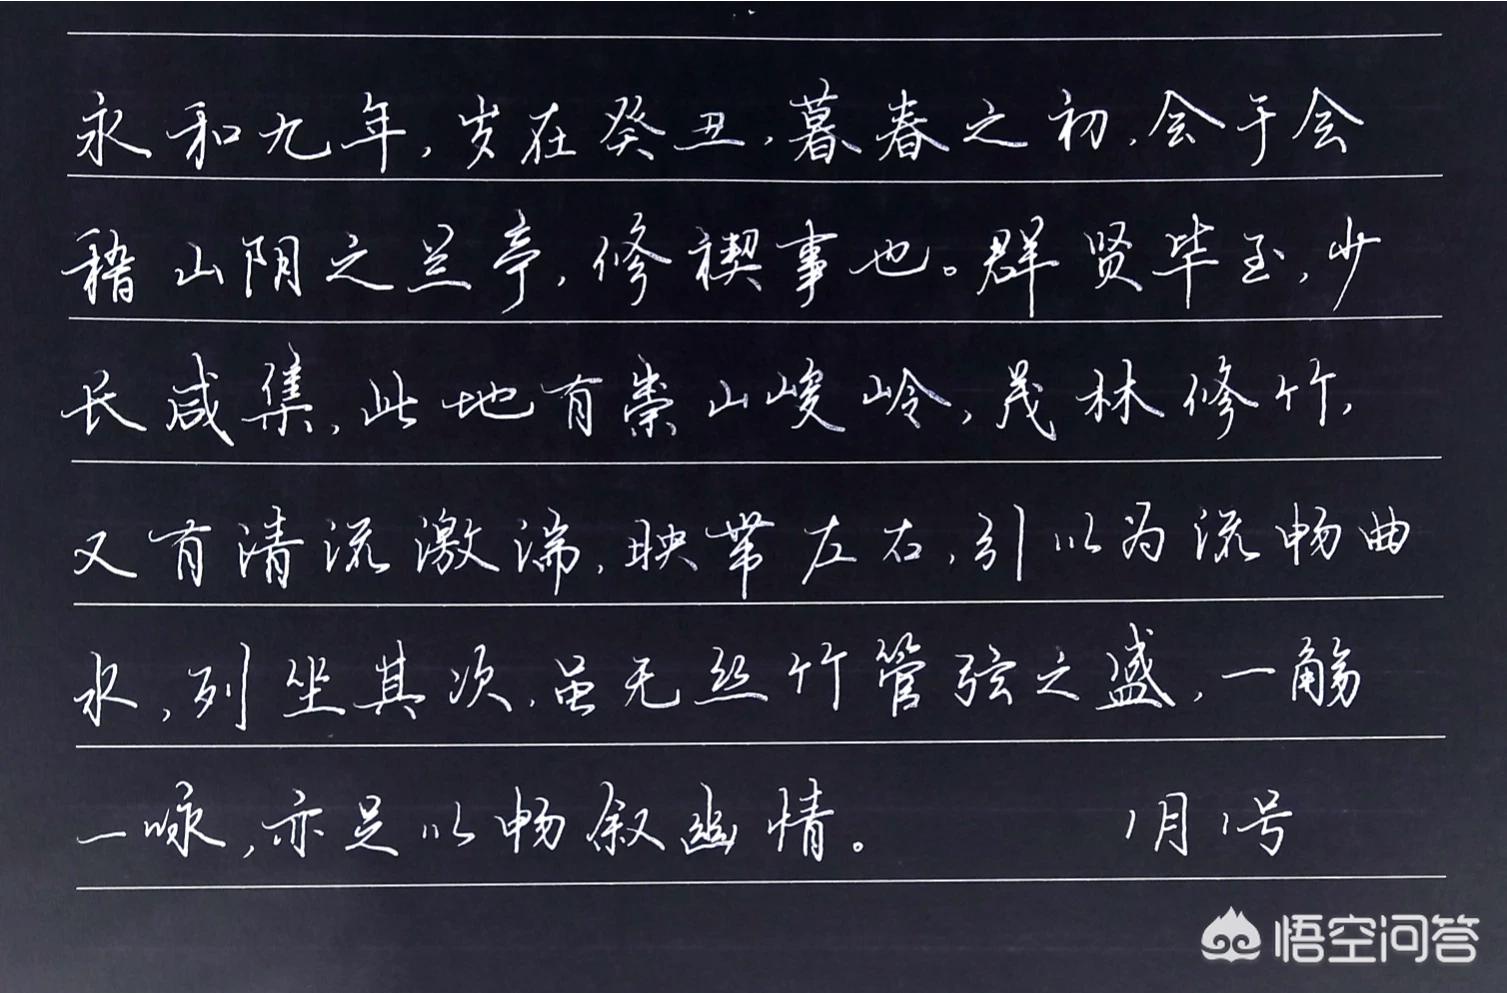 永和九年，岁在癸丑，暮春之初，会于会
稽山阴之兰亭，修禊事也。群贤毕至，少
长咸集，此地有崇山峻岭，茂林修竹，
又有清流激湍，映带左右，引以为流畅曲
水，列坐其次，虽无丝竹管弦之盛，一觞
一咏，亦足以畅叙幽情。 1月1号
悟空问答